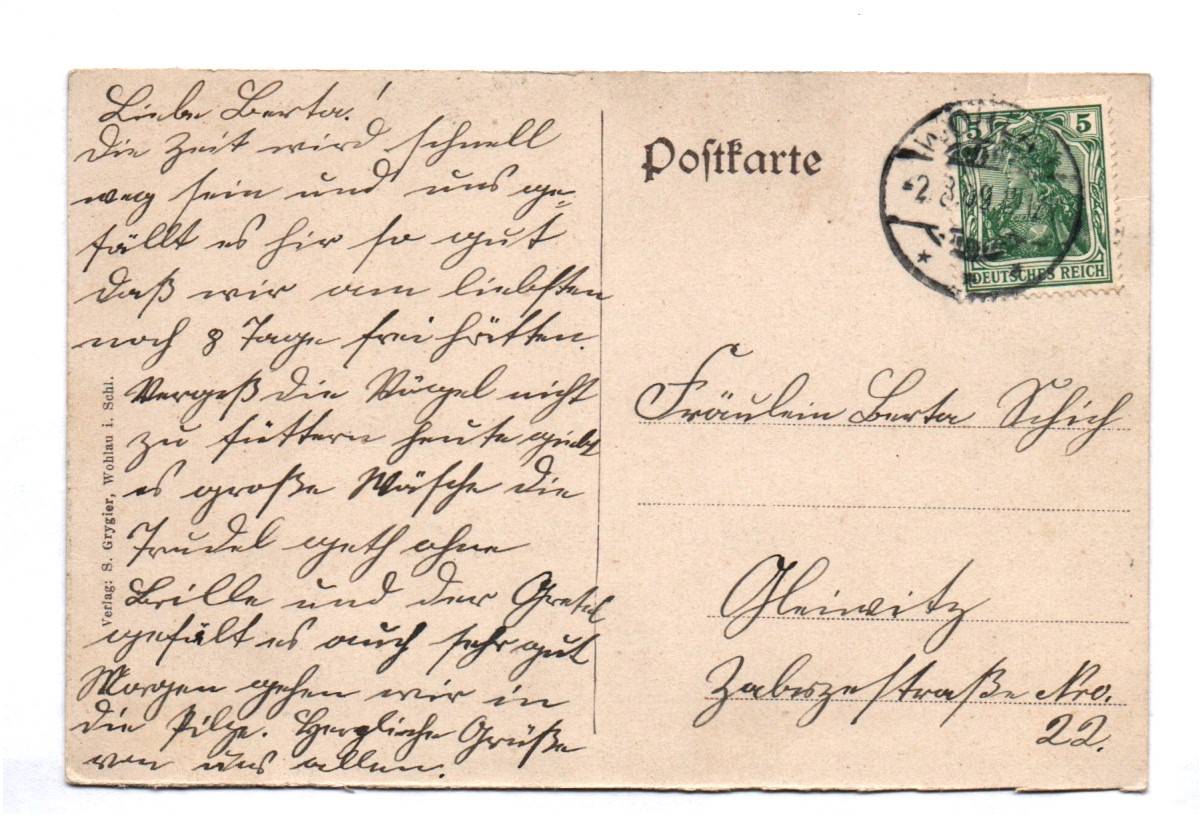 Liebe Berta!
die Zeit wird schnell
weg sein und uns ge-
fällt es hir so gut
daß wir am liebsten
noch 8 Tage frei hätten.
Vergeß die Vögel nicht
zu füttern heute giebt
es große Wäsche die
Trudel geth ohne
Brille und der Gretel
gefält es auch sehr gut
Morgen gehen wir in
die Pilze. Herzliche Grüße
von uns allen.
Verlag: S. Grygier, Wohlau i. Schl.
Postkarte
5 5
DEUTSCHES REICH
Fräulein Berta Schich
Gleiwitz
Zabrzestraße Nro.
22.